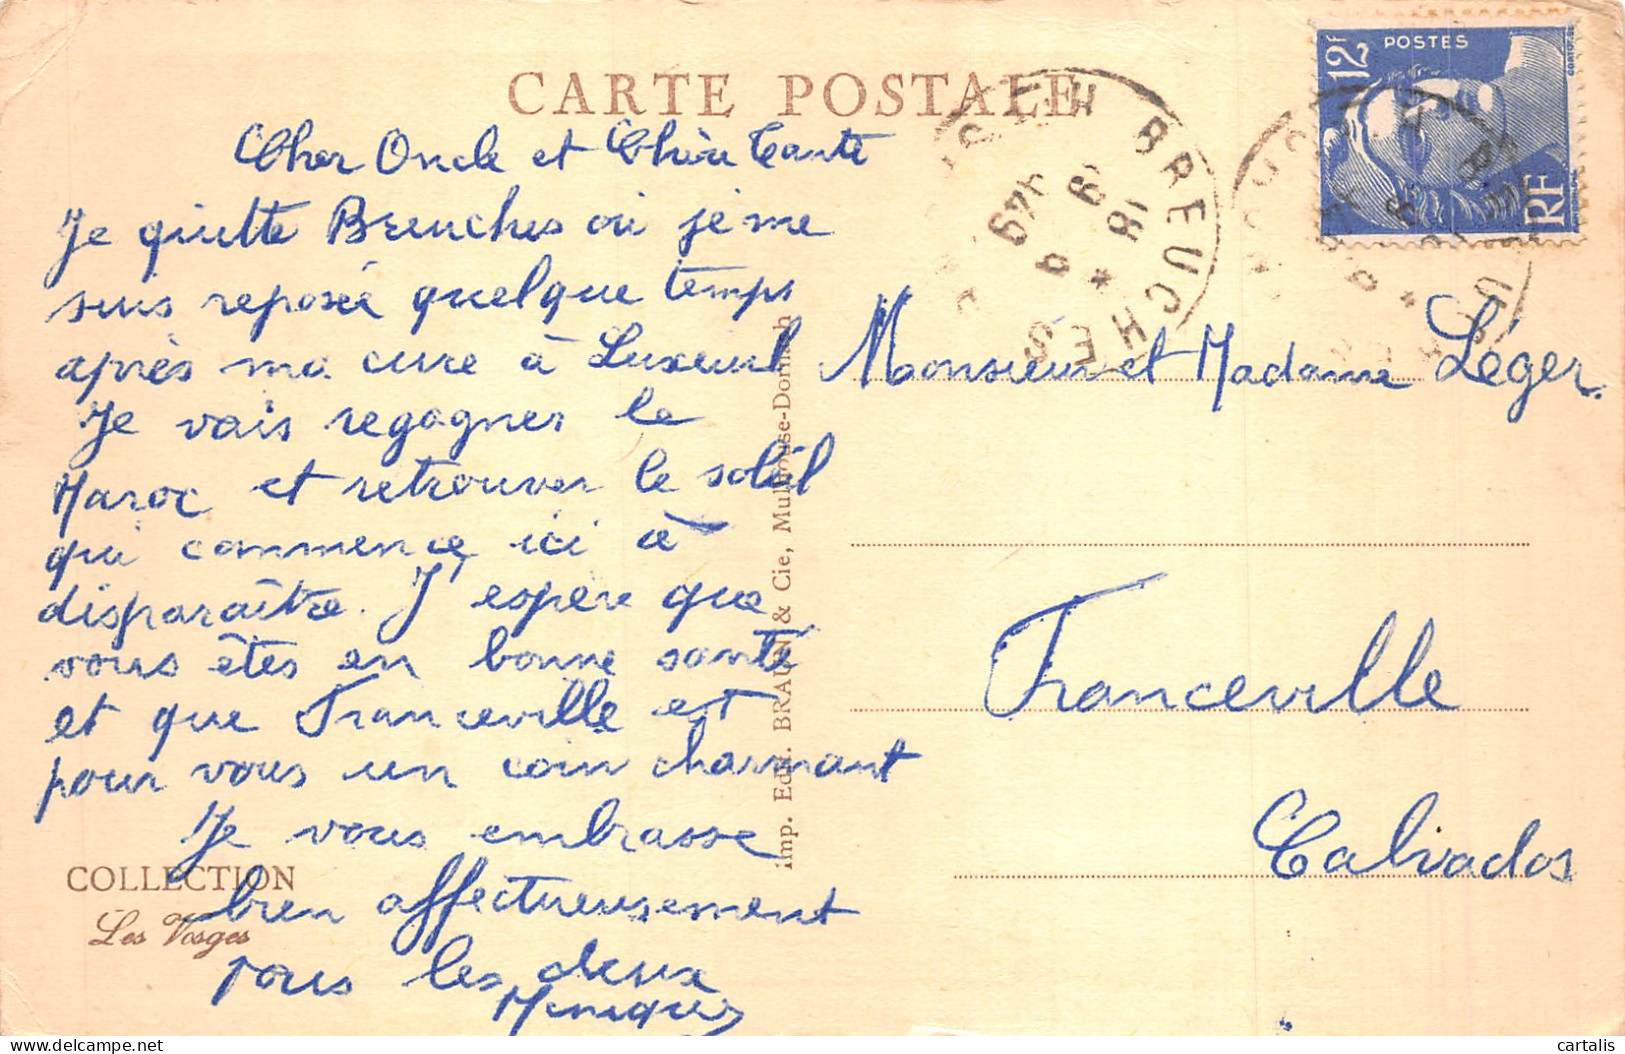 CARTE POSTALE
12F POSTES
RF
BREUCHES
18
9
49
Cher Oncle et Chère Tante
Je quitte Breuches où je me
suis reposée quelque temps
après ma cure à Luxeuil
Je vais regagner le
Maroc et retrouver le soleil
qui commence ici à
disparaître. J'espère que
vous êtes en bonne santé
et que Franceville est
pour vous un coin charmant
Je vous embrasse
bien affectueusement
tous les deux
Monsieur et Madame Léger.
Franceville
Calvados
COLLECTION
Les Vosges
imp. Edit. BRAUN & Cie, Mulhouse-Dornach
cartalis